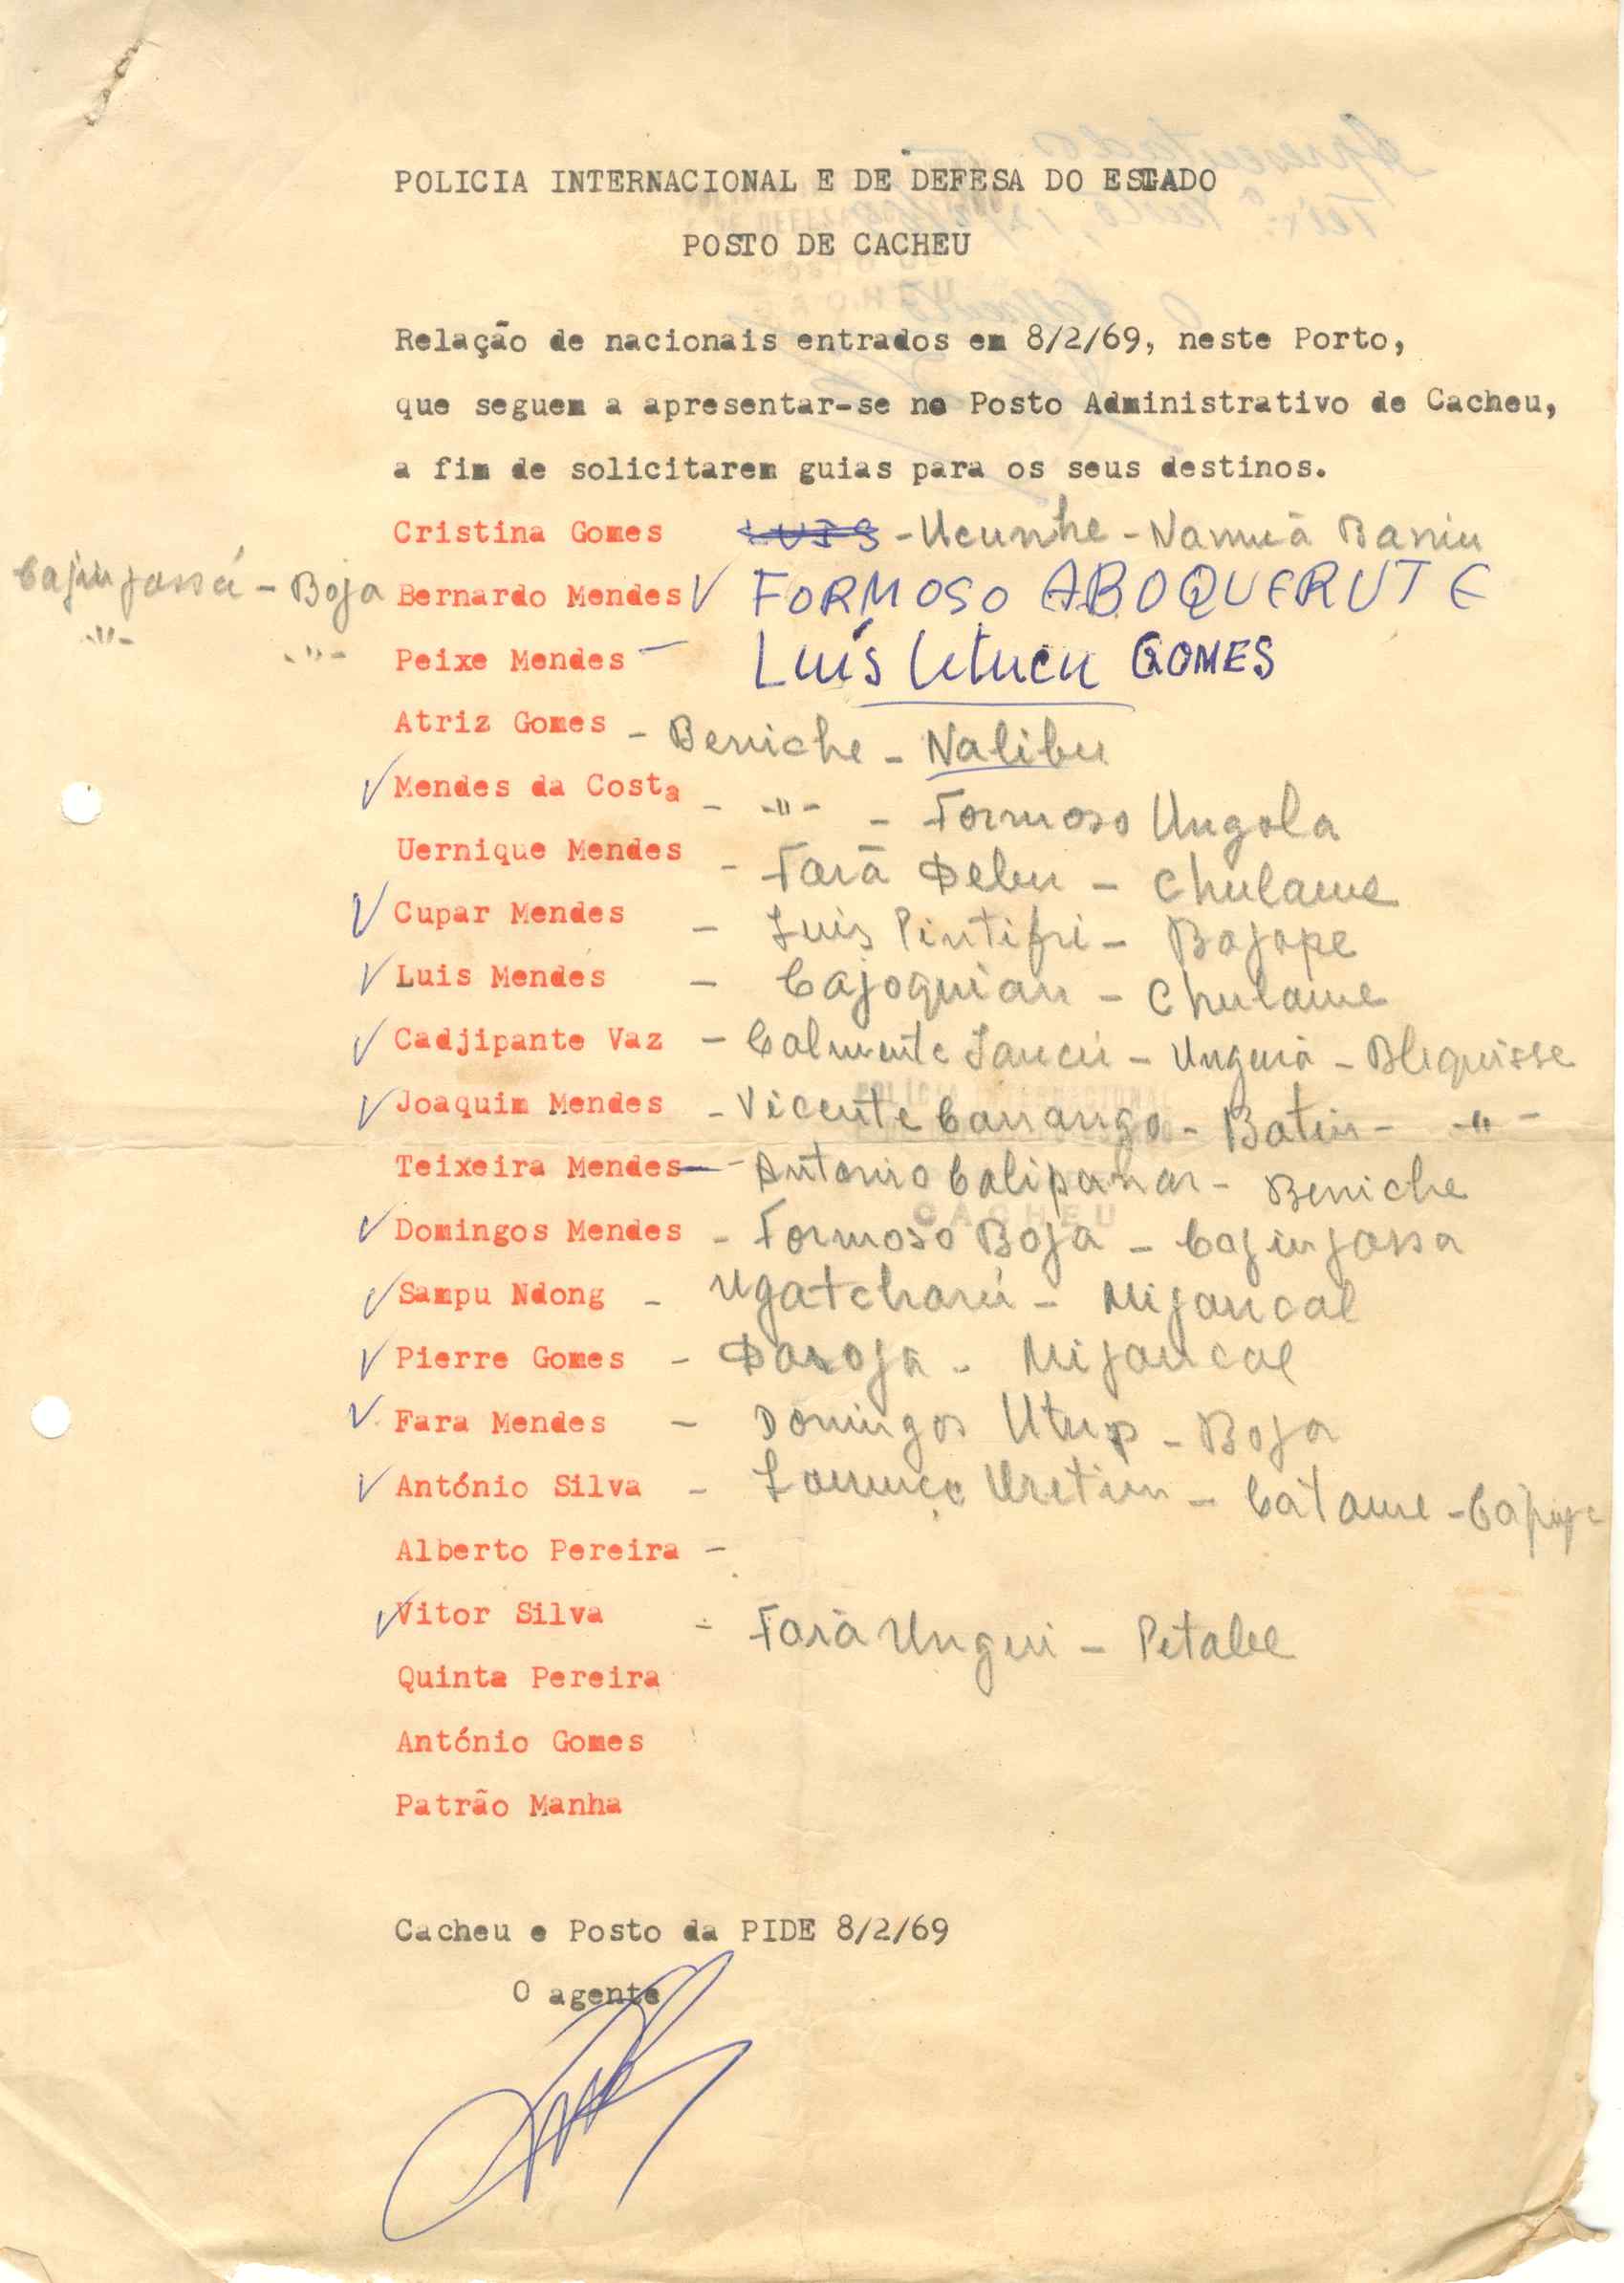 POLICIA INTERNACIONAL E DE DEFESA DO ESTADO
POSTO DE CACHEU
Relação de nacionais entrados em 8/2/69, neste Porto,
que seguem a apresentar-se no Posto Administrativo de Cacheu,
a fim de solicitarem guias para os seus destinos.
Cristina Gomes LUIS - Ucunhe - Namuã Baniu
- Boja Bernardo Mendes √ FORMOSO ABOQUERUTE
-"- -"- Peixe Mendes - Luís Utucu GOMES
Atriz Gomes - Beniche - Nalibu
√ Mendes da Costa - -"- - Formoso Ungola
Uernique Mendes - Farã Debu - Chulame
√ Cupar Mendes - Luis Pintifri - Bajope
√ Luis Mendes - Cajoquian - Chulame
√ Cadjipante Vaz - - Unguiã - Bliquisse
√ Joaquim Mendes - Vicente Canango - Batin - -"-
Teixeira Mendes - Antonio - Beniche
√ Domingos Mendes - Formoso Boja - Cajinjassa
√ Sampu Ndong - Ugatchanú - Mijancal
√ Pierre Gomes - Daroja - Mijancal
√ Fara Mendes - Domingos Utup - Boja
√ António Silva - Uretim - Catame -
Alberto Pereira -
√ Vitor Silva - Farã Ungui - Petabe
Quinta Pereira
António Gomes
Patrão Manha
Cacheu e Posto da PIDE 8/2/69
O agente